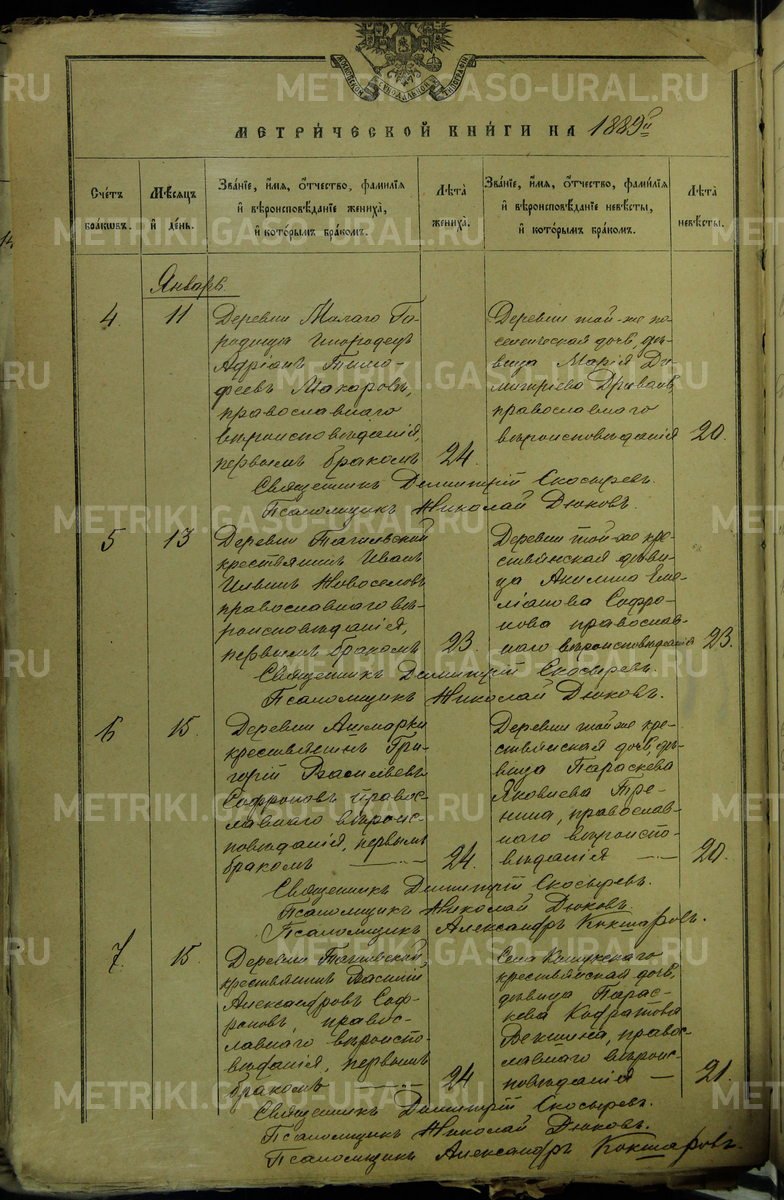 МЕТРИ́ЧЕСКОЙ КНИ́ГИ НА 1889 г.
Сче́тъ бра́кωвъ.
Мѣ́сяцъ и҆ де́нь.
Зва́нїе, и҆́мя, ѻ҆́тчество, фами́лїя
и҆ вѣроисповѣ́данїе жениха̀,
и҆ кото́рымъ бра́комъ.
Лѣ́та жениха̀.
Зва́нїе, и҆́мя, ѻ҆́тчество, фами́лїя
и҆ вѣроисповѣ́данїе невѣ́сты,
и҆ кото́рымъ бра́комъ.
Лѣ́та невѣ́сты.
Январь.
4. 11
Деревни Малаго Го-
родища инородецъ
Адріанъ Тимо-
феевъ Макаровъ,
православнаго
вѣроисповѣданія,
первымъ бракомъ 24.
Деревни той-же
дочь, дѣ-
вица Марія Ди-
митріева
православнаго
вѣроисповѣданія 20.
Священникъ Димитрій Скосыревъ.
Псаломщикъ Николай Дюковъ.
5 13
Деревни Тагильской
крестьянинъ Иванъ
Ильинъ Новоселовъ
православнаго вѣ-
роисповѣданія,
первымъ бракомъ 23.
Деревни той-же кре-
стьянская дѣви-
ца Акилина Еме-
ліанова Софро-
нова православ-
наго вѣроисповѣданія 23.
Священникъ Димитрій Скосыревъ.
Псаломщикъ Николай Дюковъ.
6 15.
Деревни
крестьянинъ Гри-
горій Васильевъ
Софроновъ правос-
лавнаго вѣроис-
повѣданія, первымъ
бракомъ — 24.
Деревни той-же кре-
стьянская дочь, дѣ-
вица Параскева
Яковлева
православ-
наго вѣроиспо-
вѣданія — 20.
Священникъ Димитрій Скосыревъ.
Псаломщикъ Николай Дюковъ.
Псаломщикъ Александръ Кокшаровъ.
7. 15.
Деревни
крестьянинъ Василій
Александровъ Соф-
роновъ, правос-
лавнаго вѣроиспо-
вѣданія, первымъ
бракомъ — 24
Села
крестьянская дочь,
дѣвица Парас-
кева Кодратова
Векшина, правос-
лавнаго вѣроис-
повѣданія — 21.
Священникъ Димитрій Скосыревъ.
Псаломщикъ Николай Дюковъ.
Псаломщикъ Александръ Кокшаровъ.
METRIKI.GASO-URAL.RU